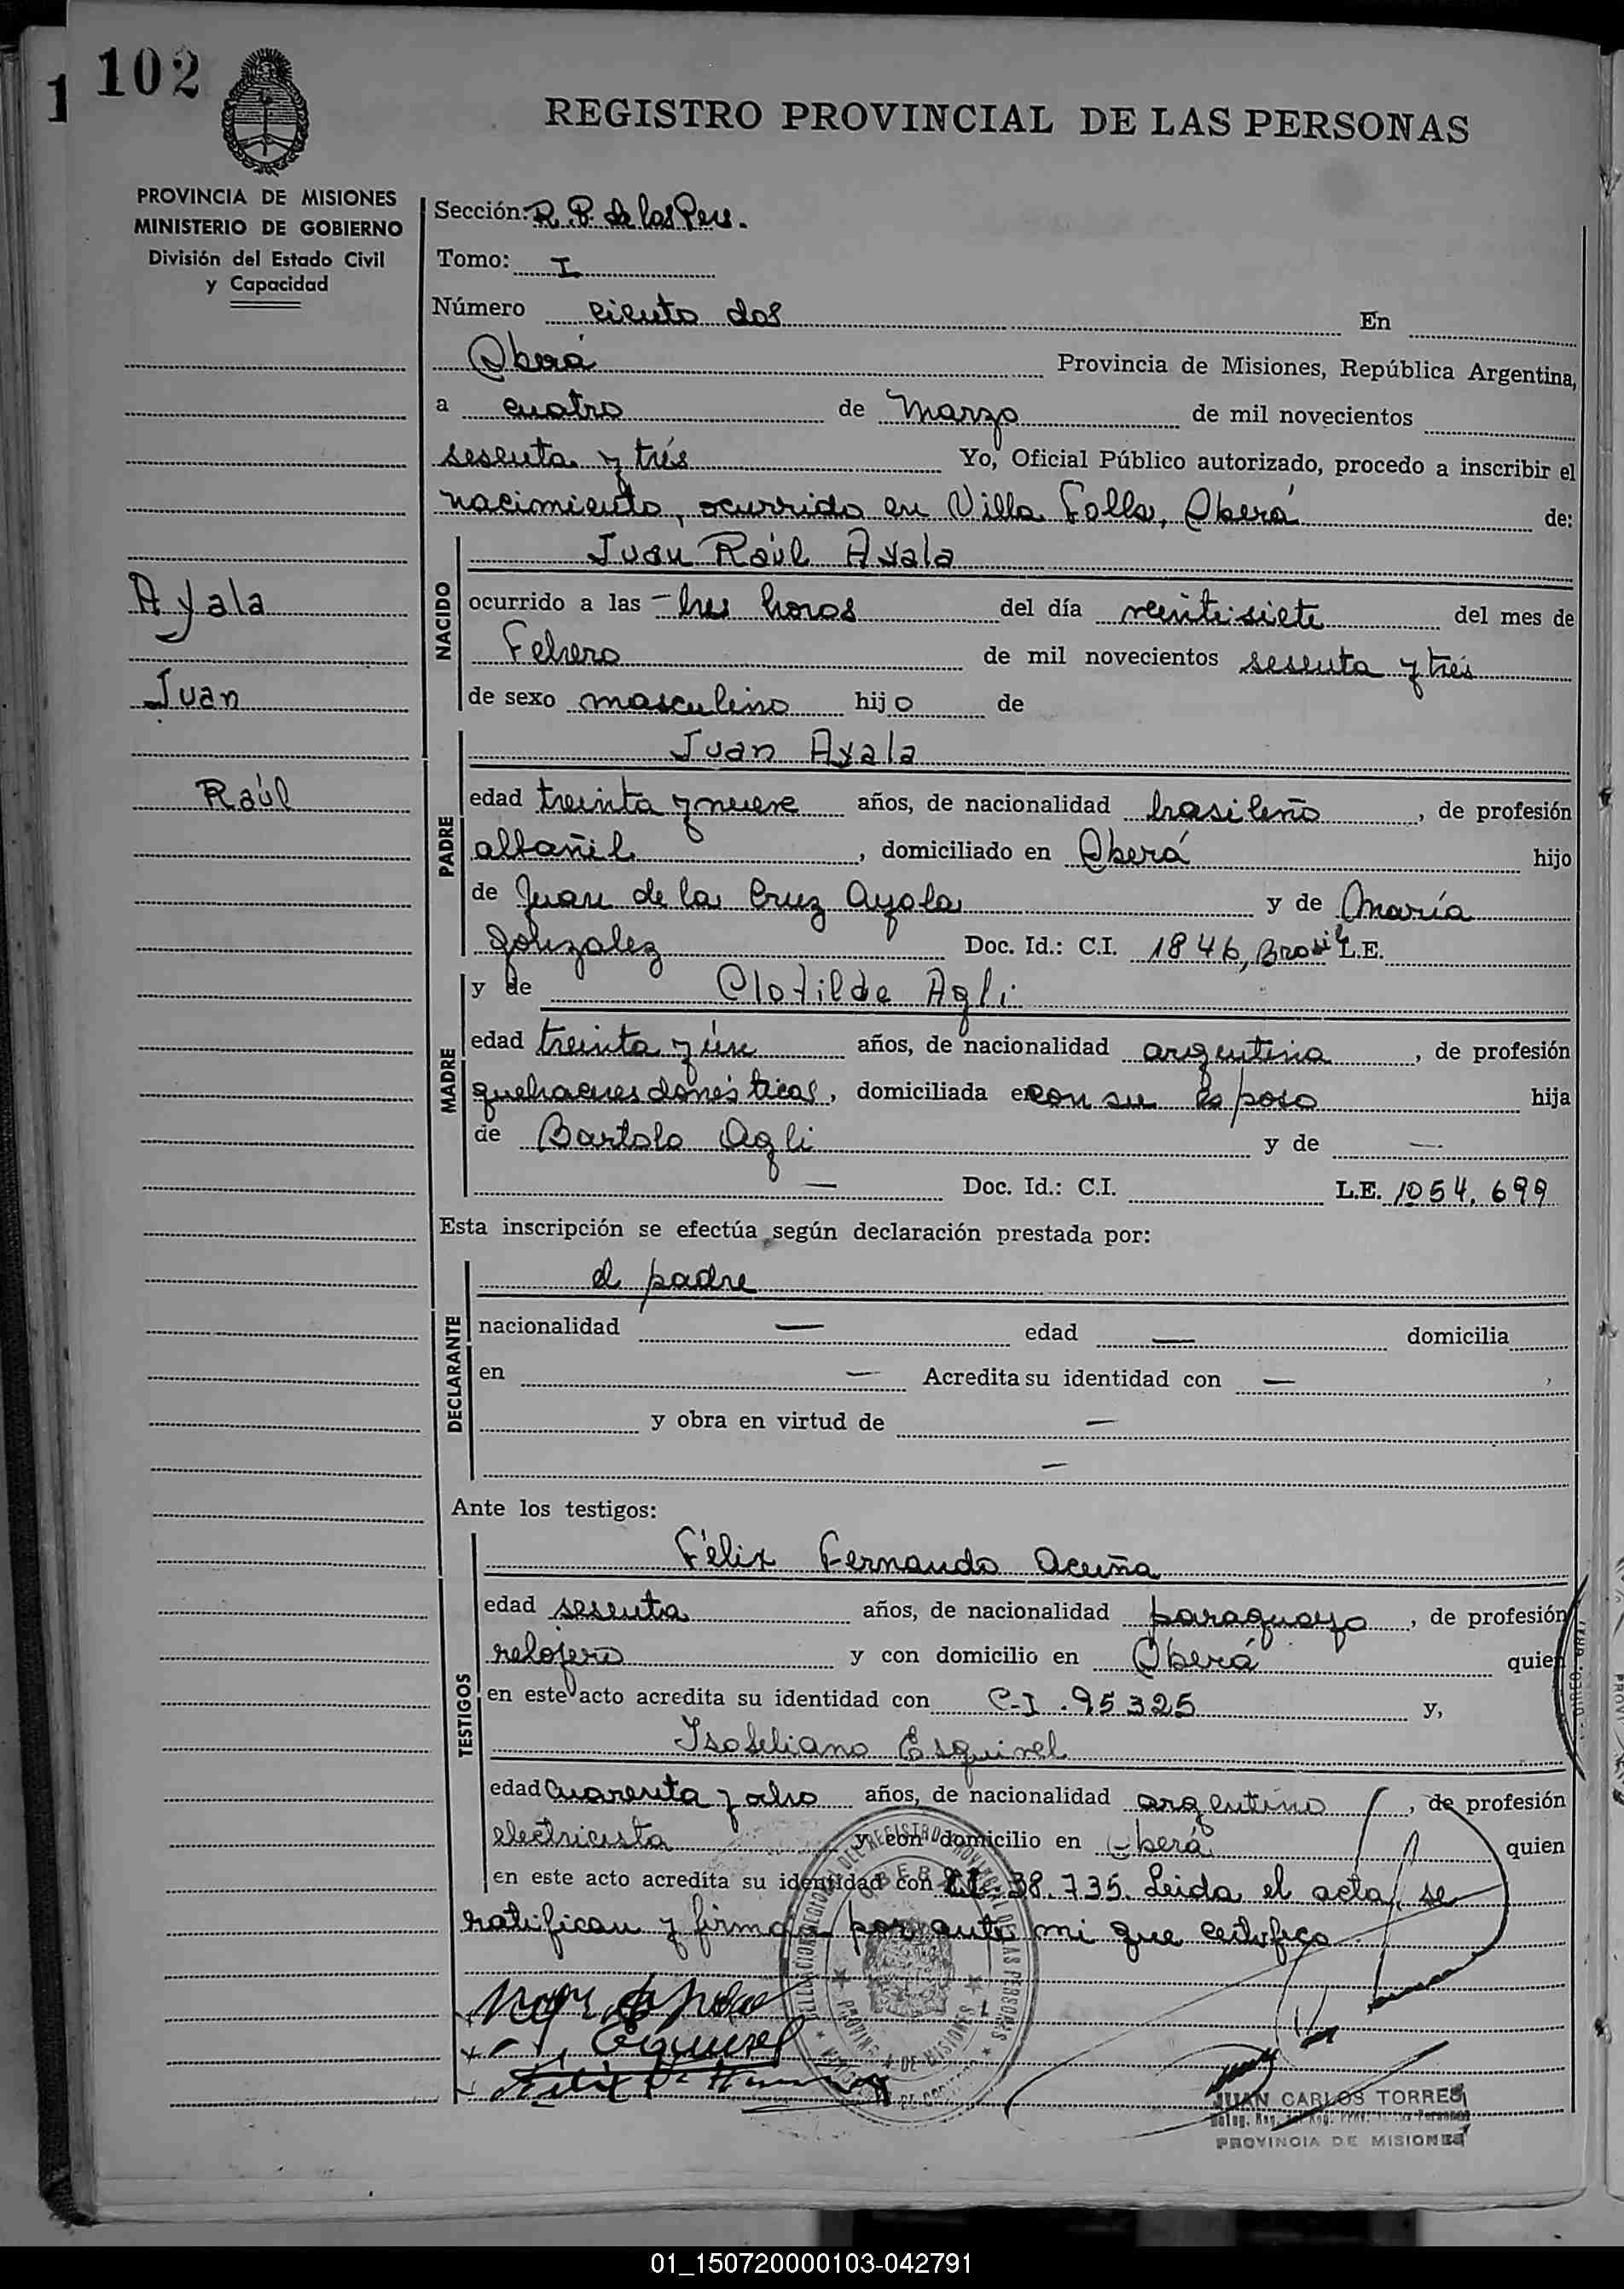 102
1
REGISTRO PROVINCIAL DE LAS PERSONAS
PROVINCIA DE MISIONES
MINISTERIO DE GOBIERNO
División del Estado Civil
y Capacidad
Ayala
Juan
Raúl
Sección: R. P. de las Pers.
Tomo: I
Número ciento dos En
Oberá Provincia de Misiones, República Argentina,
a cuatro de Marzo de mil novecientos
sesenta y trés Yo, Oficial Público autorizado, procedo a inscribir el
nacimiento, ocurrido en Villa Falla, Oberá de:
NACIDO
Juan Raúl Ayala
ocurrido a las tres horas del día veintisiete del mes de
Febrero de mil novecientos sesenta y trés
de sexo masculino hijo de
PADRE
Juan Ayala
edad treinta y nueve años, de nacionalidad brasileño, de profesión
albañil, domiciliado en Oberá hijo
de Juan de la Cruz Ayala y de María
Gonzalez Doc. Id.: C.I. 1846, Brasil L.E.
MADRE
y de Clotilde Agli
edad treinta y un años, de nacionalidad argentina, de profesión
quehaceres domésticos, domiciliada en con su Esposo hija
de Bartolo Agli y de —
— Doc. Id.: C.I. L.E. 1054.699
Esta inscripción se efectúa según declaración prestada por:
DECLARANTE
el padre
nacionalidad — edad — domicilia
en — Acredita su identidad con —
y obra en virtud de —
—
Ante los testigos:
TESTIGOS
Félix Fernando Acuña
edad sesenta años, de nacionalidad paraguayo, de profesión
relojero y con domicilio en Oberá quien
en este acto acredita su identidad con C.I. 95325 y,
Esquivel
edad cuarenta y ocho años, de nacionalidad argentino, de profesión
electricista y con domicilio en Oberá quien
en este acto acredita su identidad con 38.735. Leida el acta, se
ratifican y firman por ante mi que certifico
Esquivel
JUAN CARLOS TORRES
PROVINCIA DE MISIONES
01_150720000103-042791